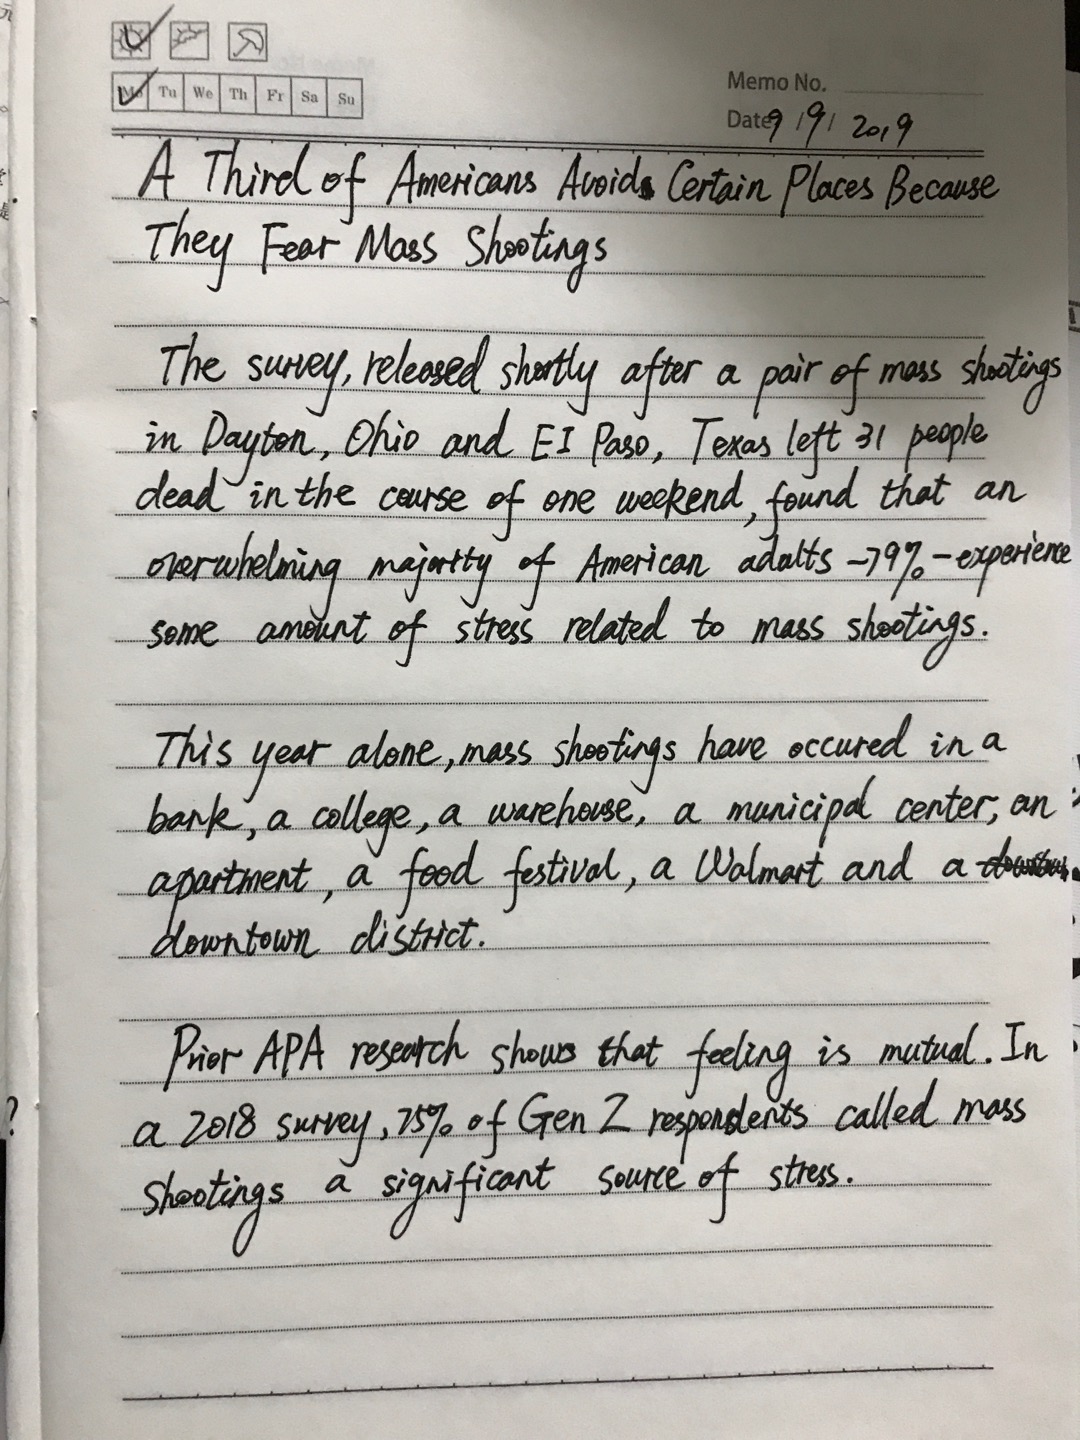 Mo Tu We Th Fr Sa Su
Memo No.
Date 9 / 9 / 2019
A Third of Americans Avoids Certain Places Because
They Fear Mass Shootings
The survey, released shortly after a pair of mass shootings
in Dayton, Ohio and EI Paso, Texas left 31 people
dead in the course of one weekend, found that an
overwhelming majority of American adults -79%- experience
some amount of stress related to mass shootings.
This year alone, mass shootings have occured in a
bank, a college, a warehouse, a municipal center, an
apartment, a food festival, a Walmart and a
downtown district.
Prior APA research shows that feeling is mutual. In
a 2018 survey, 75% of Gen Z respondents called mass
shootings a significant source of stress.
?